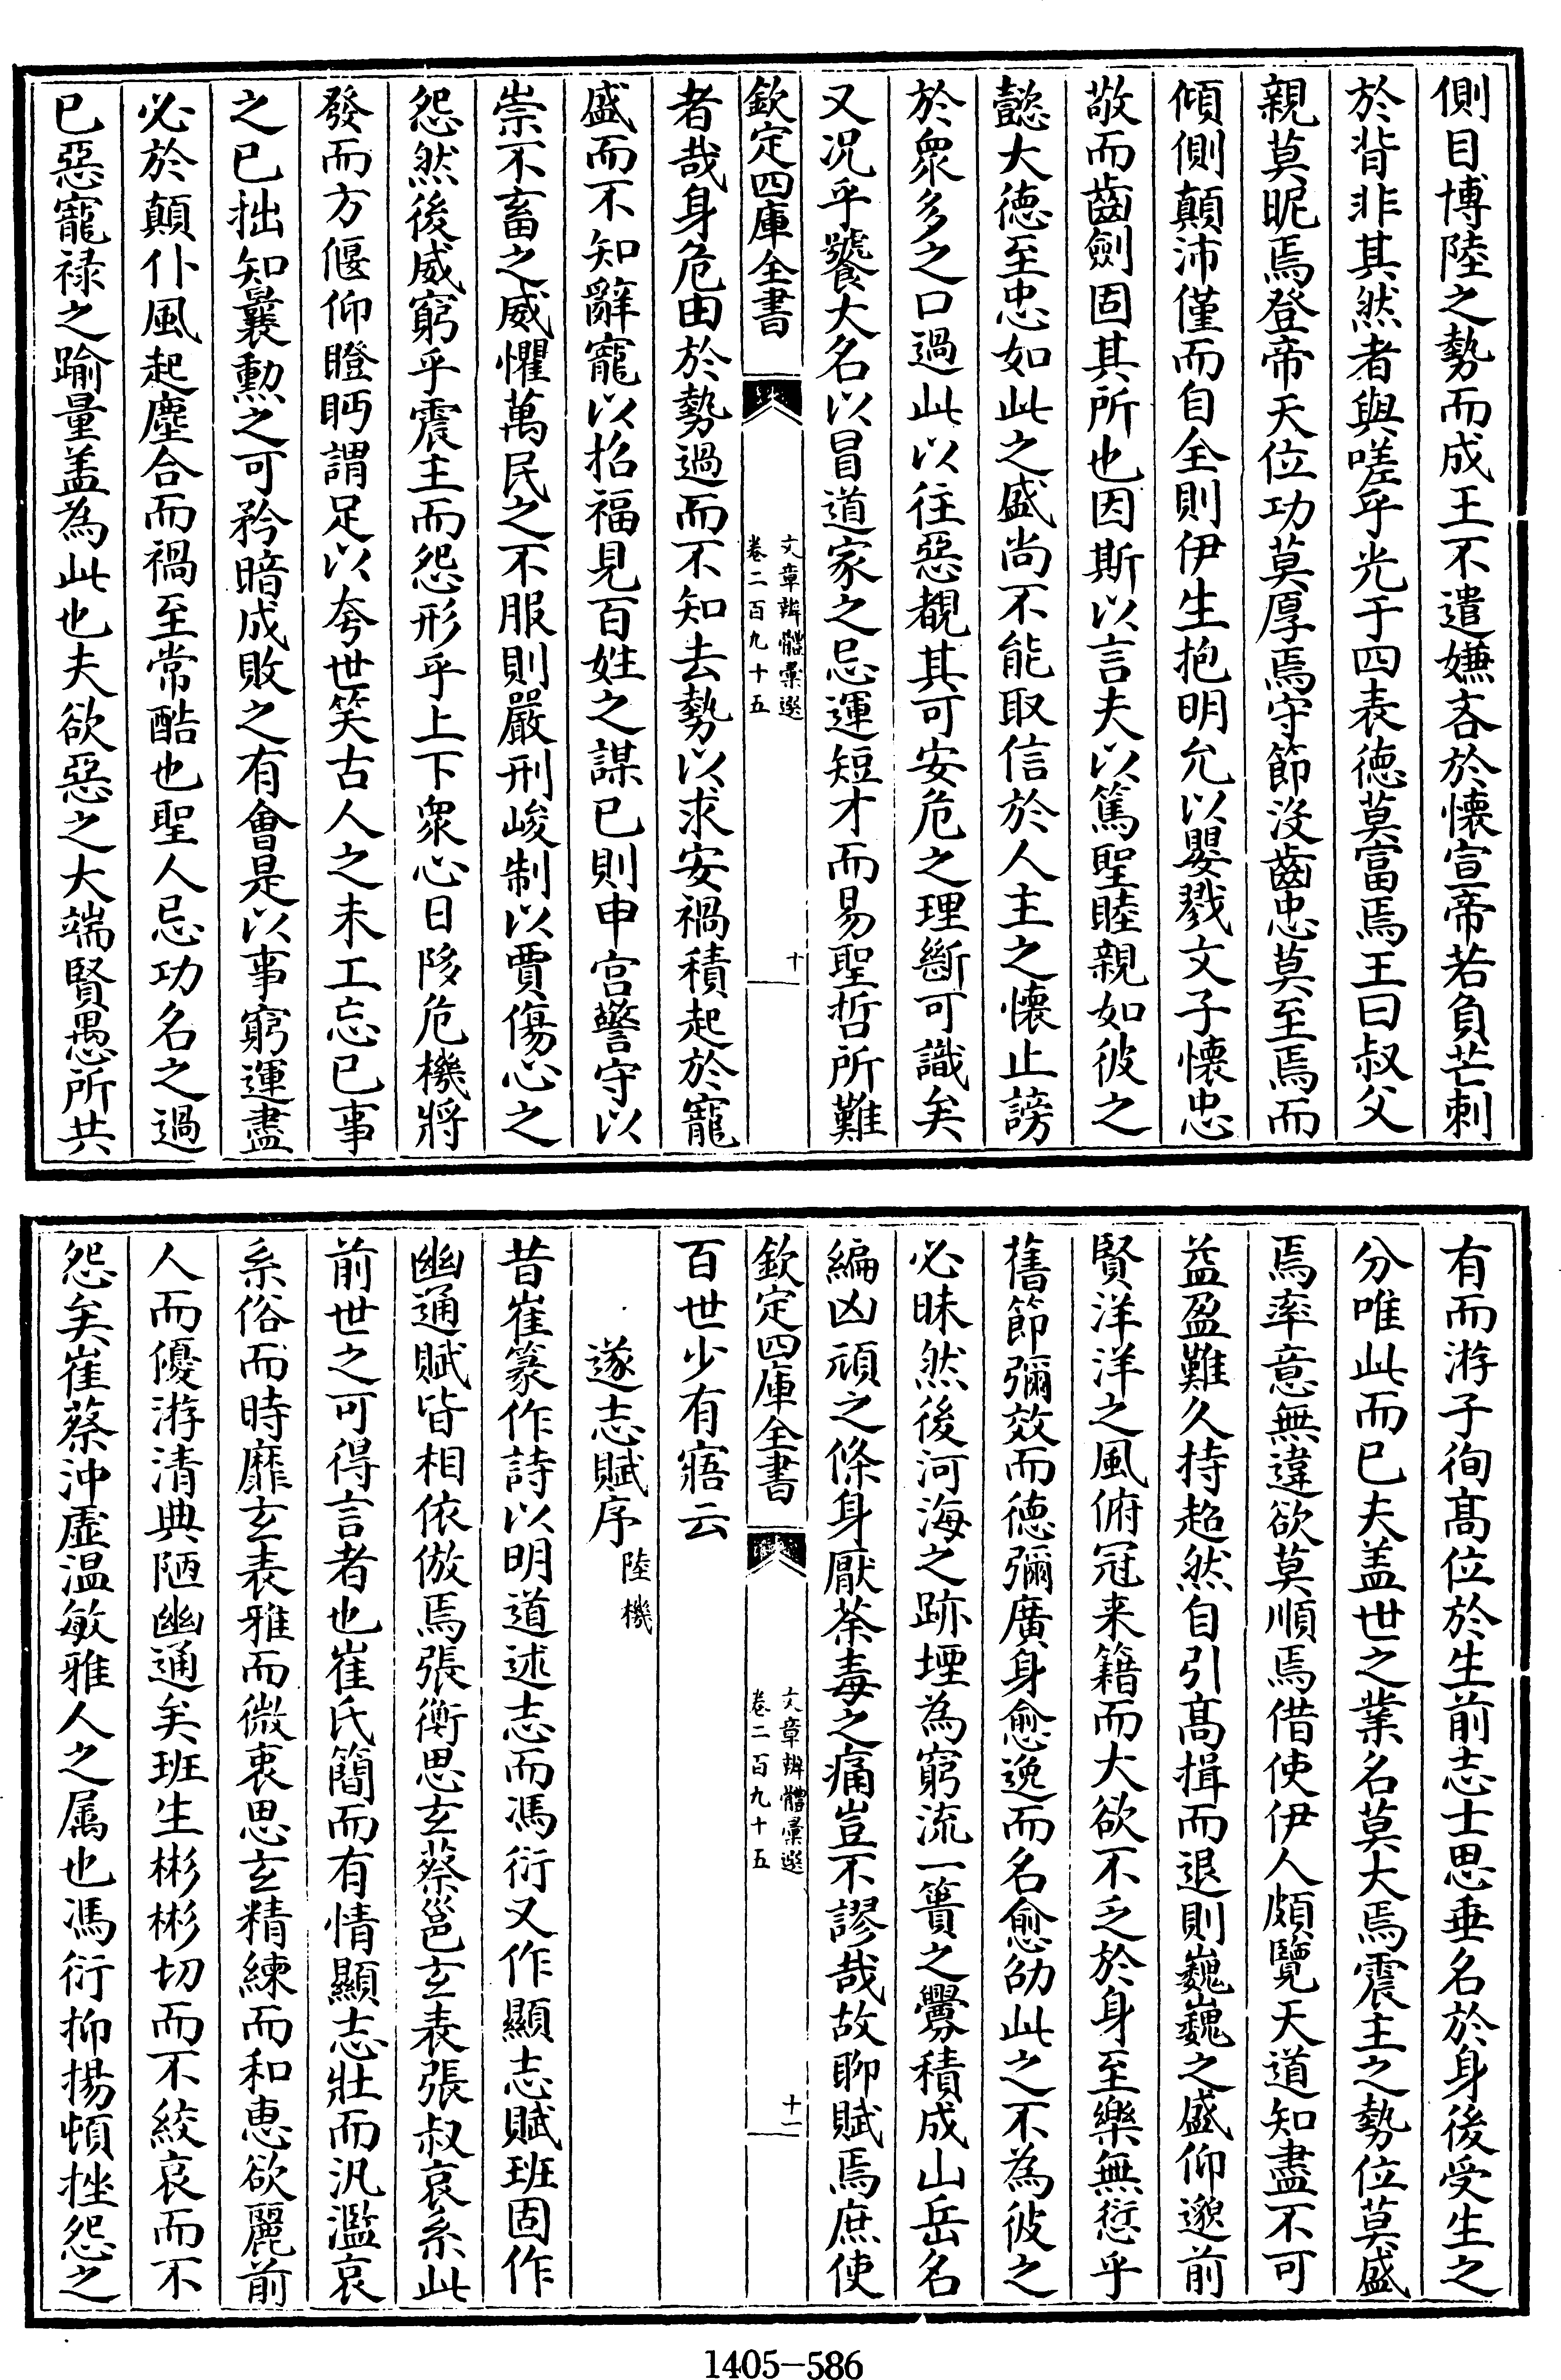 側目博陸之勢而成王不遣嫌吝於懐宣帝若負芒刺
於背非其然者與嗟乎光于四表徳莫富焉王曰叔父
親莫昵焉登帝天位功莫厚焉守節沒齒忠莫至焉而
傾側顛沛僅而自全則伊生抱明允以嬰戮文子懐忠
敬而齒劍固其所也因斯以言夫以篤聖睦親如彼之
懿大徳至忠如此之盛尚不能取信於人主之懐止謗
於衆多之口過此以往惡覩其可安危之理斷可識矣
又况乎饕大名以冒道家之忌運短才而易聖哲所難
欽定四庫全書
文章辨體彚選
卷二百九十五
十
者哉身危由於勢過而不知去勢以求安禍積起於寵
盛而不知辭寵以招福見百姓之謀已則申宫警守以
崇不畜之威懼萬民之不服則嚴刑峻制以賈傷心之
怨然後威窮乎震主而怨形乎上下衆心日陊危機將
發而方偃仰瞪眄謂足以夸世笑古人之未工忘已事
之已拙知曩勲之可矜暗成敗之有會是以事窮運盡
必於顛仆風起塵合而禍至常酷也聖人忌功名之過
已惡寵禄之踰量盖為此也夫欲惡之大端賢愚所共
有而游子徇髙位於生前志士思垂名於身後受生之
分唯此而已夫盖世之業名莫大焉震主之勢位莫盛
焉率意無違欲莫順焉借使伊人頗覽天道知盡不可
益盈難久持超然自引髙揖而退則巍巍之盛仰邈前
賢洋洋之風俯冠来籍而大欲不乏於身至樂無愆乎
舊節彌效而徳彌廣身愈逸而名愈劭此之不為彼之
必昧然後河海之跡堙為窮流一簣之釁積成山岳名
編凶頑之條身厭荼毒之痛豈不謬哉故聊賦焉庶使
欽定四庫全書
文章辨體彚選
卷二百九十五
十一
百世少有寤云
遂志賦序 陸機
昔崔篆作詩以明道述志而馮衍又作顯志賦班固作
幽通賦皆相依倣焉張衡思玄蔡邕玄表張叔哀系此
前世之可得言者也崔氏簡而有情顯志壯而汎濫哀
系俗而時靡玄表雅而微衷思玄精練而和恵欲麗前
人而優游清典陋幽通矣班生彬彬切而不絞哀而不
怨矣崔蔡沖虚温敏雅人之属也馮衍抑揚頓挫怨之
1405-586